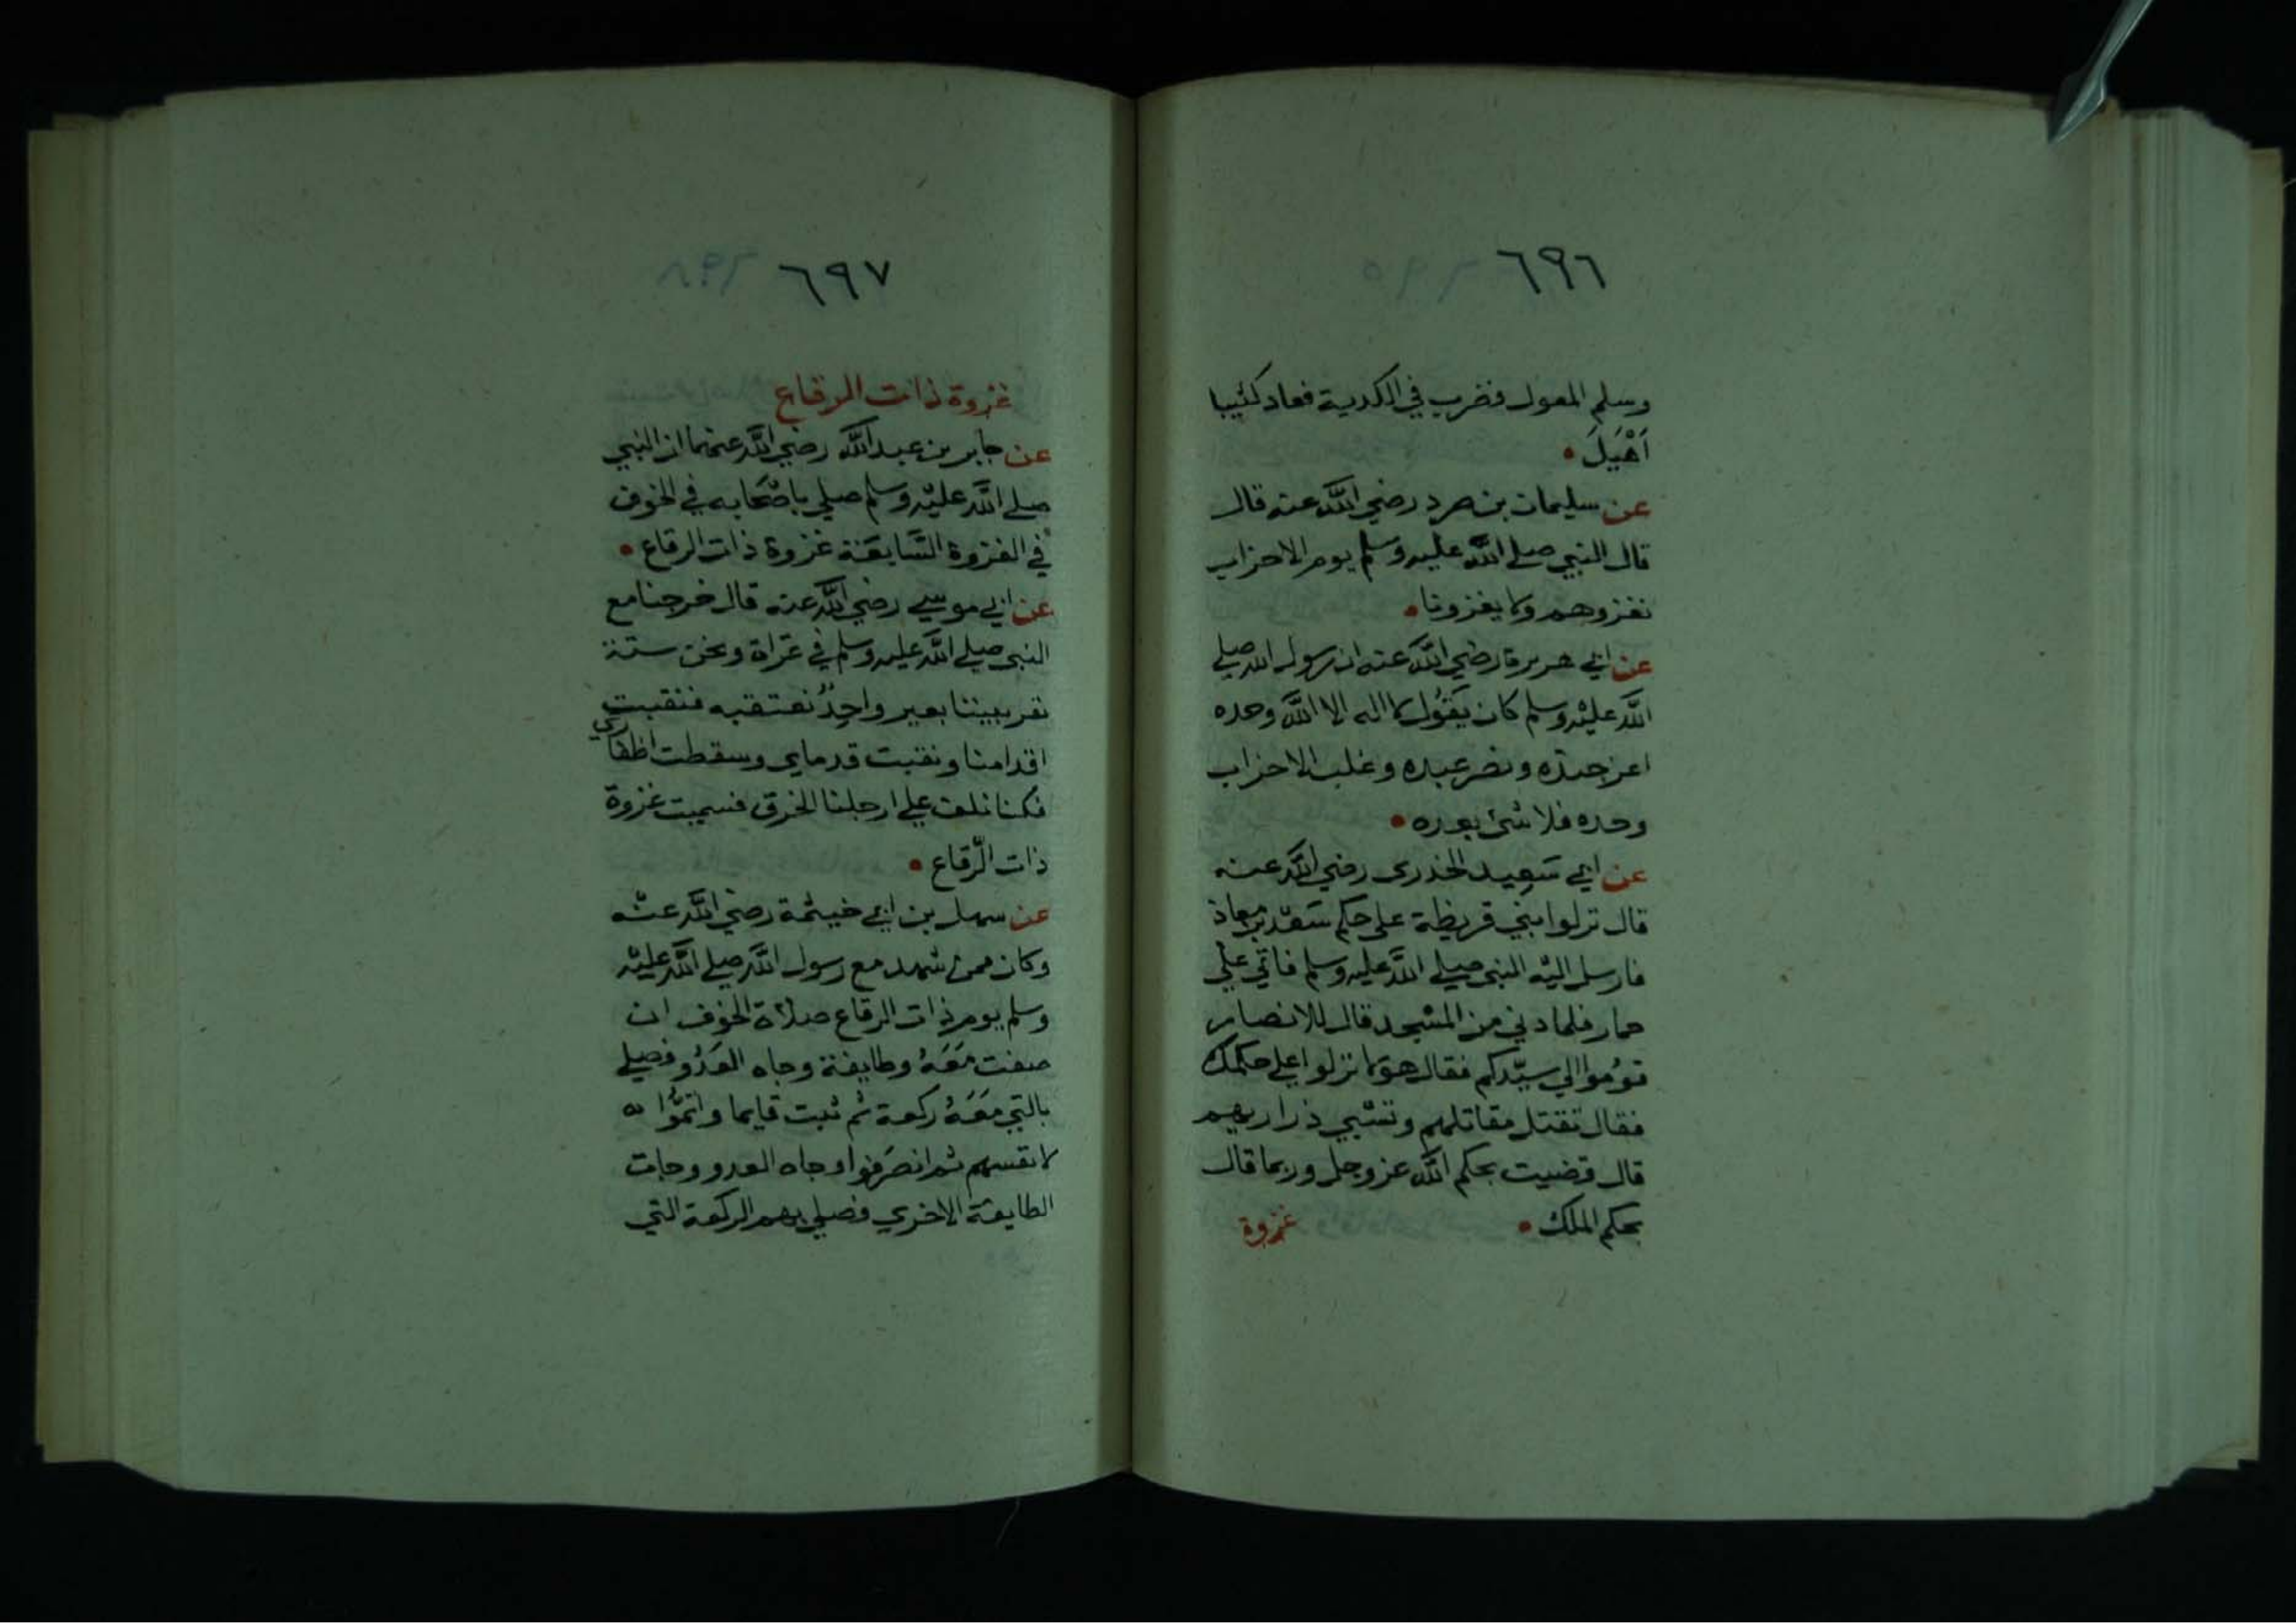 ٦٩٦
وسلم المعول فضرب في الكدية فعاد كثيبا
اَهْيَلَ
عن سليمان بن صرد رضي اللَّه عنه قال
قال النبي صلے اللَّه عليه وسلم يوم الاحزاب
نغزوهم ولا يغزونا
عن ابي هريرة رضي اللَّه عنه ان رسول الله صلي
اللَّه عليْه وسلم كان يَقُول لا اله الا اللَّه وحده
اعز جنده ونصر عبده وغلب الاحزاب
وحده فلا شئ بعده
عن ابي سَعِيد الخدرى رضي اللَّه عنه
قال نزلوا بني قريظة على حكم سَعْد بن معاذ
فارسل اليْه النبي صلے اللَّه عليه وسلم فاتي علي
حمار فلما دني من المسْجد قال للانصار
قوُموا الي سيّدكم فقال هؤلا نزلوا علي حكمك
فقال تقتل مقاتلهم وتسْبي ذراريهم
قال قضيت بحكم اللَّه عز وجل وربما قال
بحكم الملك
غزوة
٦٩٧
غزوة ذات الرقاع
عن جابر بن عبد اللَّه رضي اللَّه عنهما ان النبي
صلے اللَّه عليْه وسلم صلي باصْحَابه في الخوف
في الغزوة السَّابعَة غزوة ذات الرقاع
عن ابي موسي رضي اللَّه عنه قال خرجنا مع
النبي صلے اللَّه عليه وسلم في غزاة ونحن ستة
نفر بيننا بعير واحِدُ نعتقبه فنقبت
اقدامنا ونقبت قدماي وسقطت اظفاري
فكنا نلف علي ارجلنا الخرق فسميت غزوة
ذات الرّقاع
عن سهل بن ابي خيثمة رضي اللَّه عنْه
وكان ممن شهد مع رسول اللَّه صلے اللَّه عليْه
وسلم يوم ذات الرقاع صلاة الخوف ان
صفت مَعَهُ وطايفة وجاه العَدُو فصلي
بالتي مَعَهُ ركعة ثم ثبت قايما واتموُّا
لانفسهم ثم انصَرَفوا وجاه العدو وجات
الطايفة الاخري فصلي بهم الركعة التي